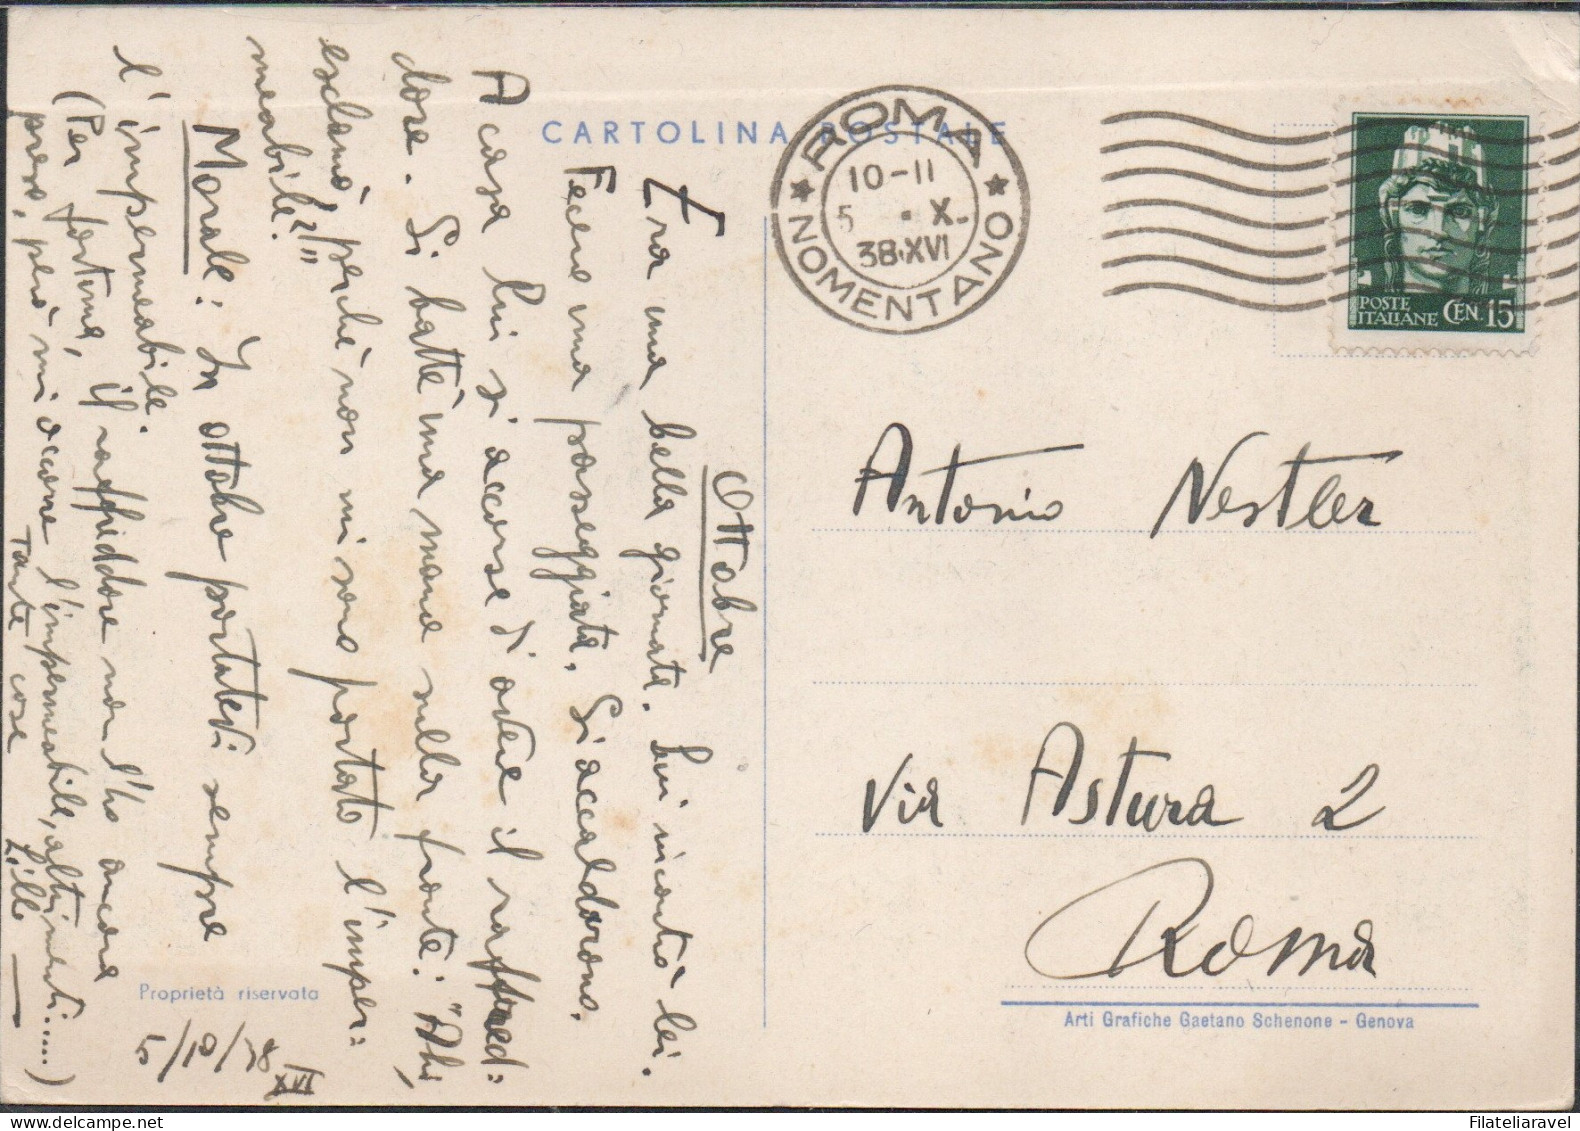 CARTOLINA POSTALE
ROMA
NOMENTANO
10-11
5 . X.
38.XVI
POSTE
ITALIANE CEN. 15
Ottobre
Era una bella giornata. Lui incontrò lei.
Fecero una passeggiata. Si accaldarono.
A casa lui si accorse d'avere il raffred=
dore. Si battè una mano sulla fronte: "Ahi,
esclamò, perchè non mi sono portato l'imper=
meabile!"
Morale: In ottobre portatevi sempre
l'impermeabile.
(Per fortuna, il raffreddore non l'ho ancora
preso, però mi occorre l'impermeabile, altrimenti.....)
Tante cose
Lillo
Antonio Nestler
Via Astura 2
Roma
Proprietà riservata
5/10/38 XVI
Arti Grafiche Gaetano Schenone - Genova
www.Filateliaravel